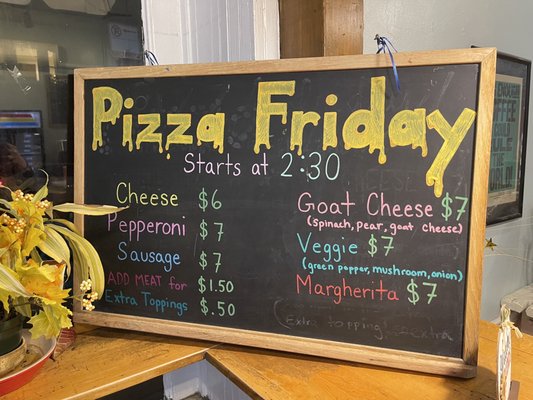 Pizza Friday
Starts at 2:30
Cheese $6
Pepperoni $7
Sausage $7
ADD MEAT for $1.50
Extra Toppings $.50
Goat Cheese $7
(spinach, pear, goat cheese)
Veggie $7
(green pepper, mushroom, onion)
Margherita $7
Extra topping
extra